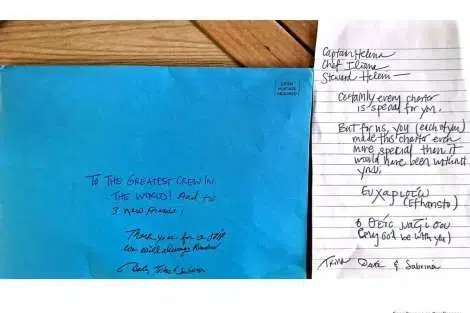 TO THE GREATEST CREW IN
THE WORLD! And to
3 New Friends!
Thank you for a trip
we will always
Captain Helena
Chef Iliana
Steward Helen —
Certainly every charter
is special for you.
But for us, you (each of you)
made this charter even
more special then it
would have been without
you.
Ευχαριστώ
(Efharisto)
(May God be with you)
Trina Dave & Sabrina